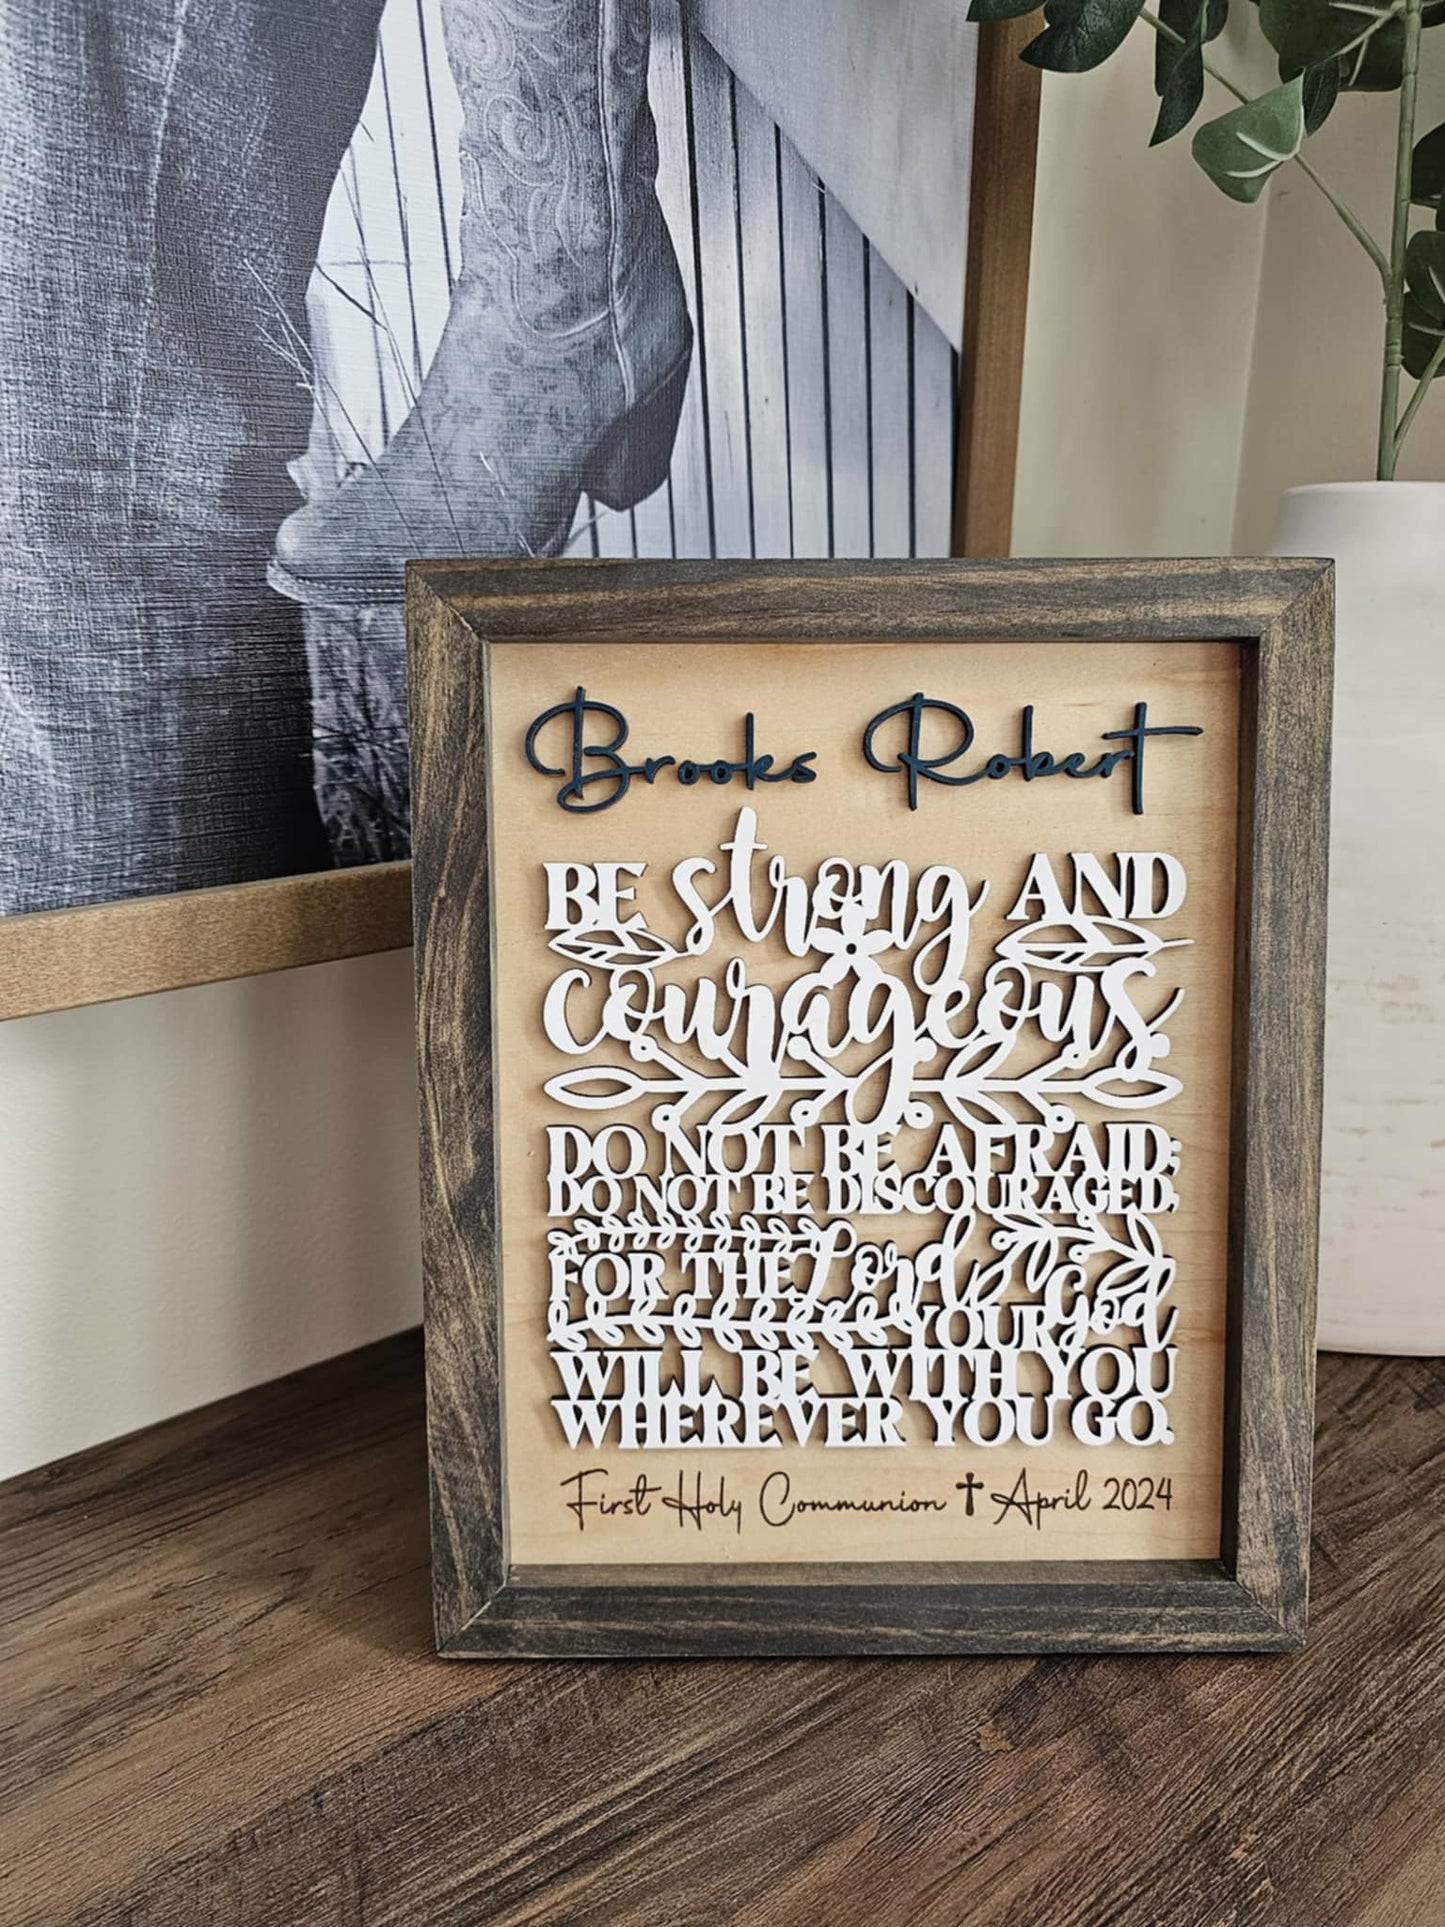 Brooks Robert
BE strong AND
courageous
DO NOT BE AFRAID;
DO NOT BE DISCOURAGED,
FOR THE Lord
YOUR God
WILL BE WITH YOU
WHEREVER YOU GO.
First Holy Communion ✝ April 2024